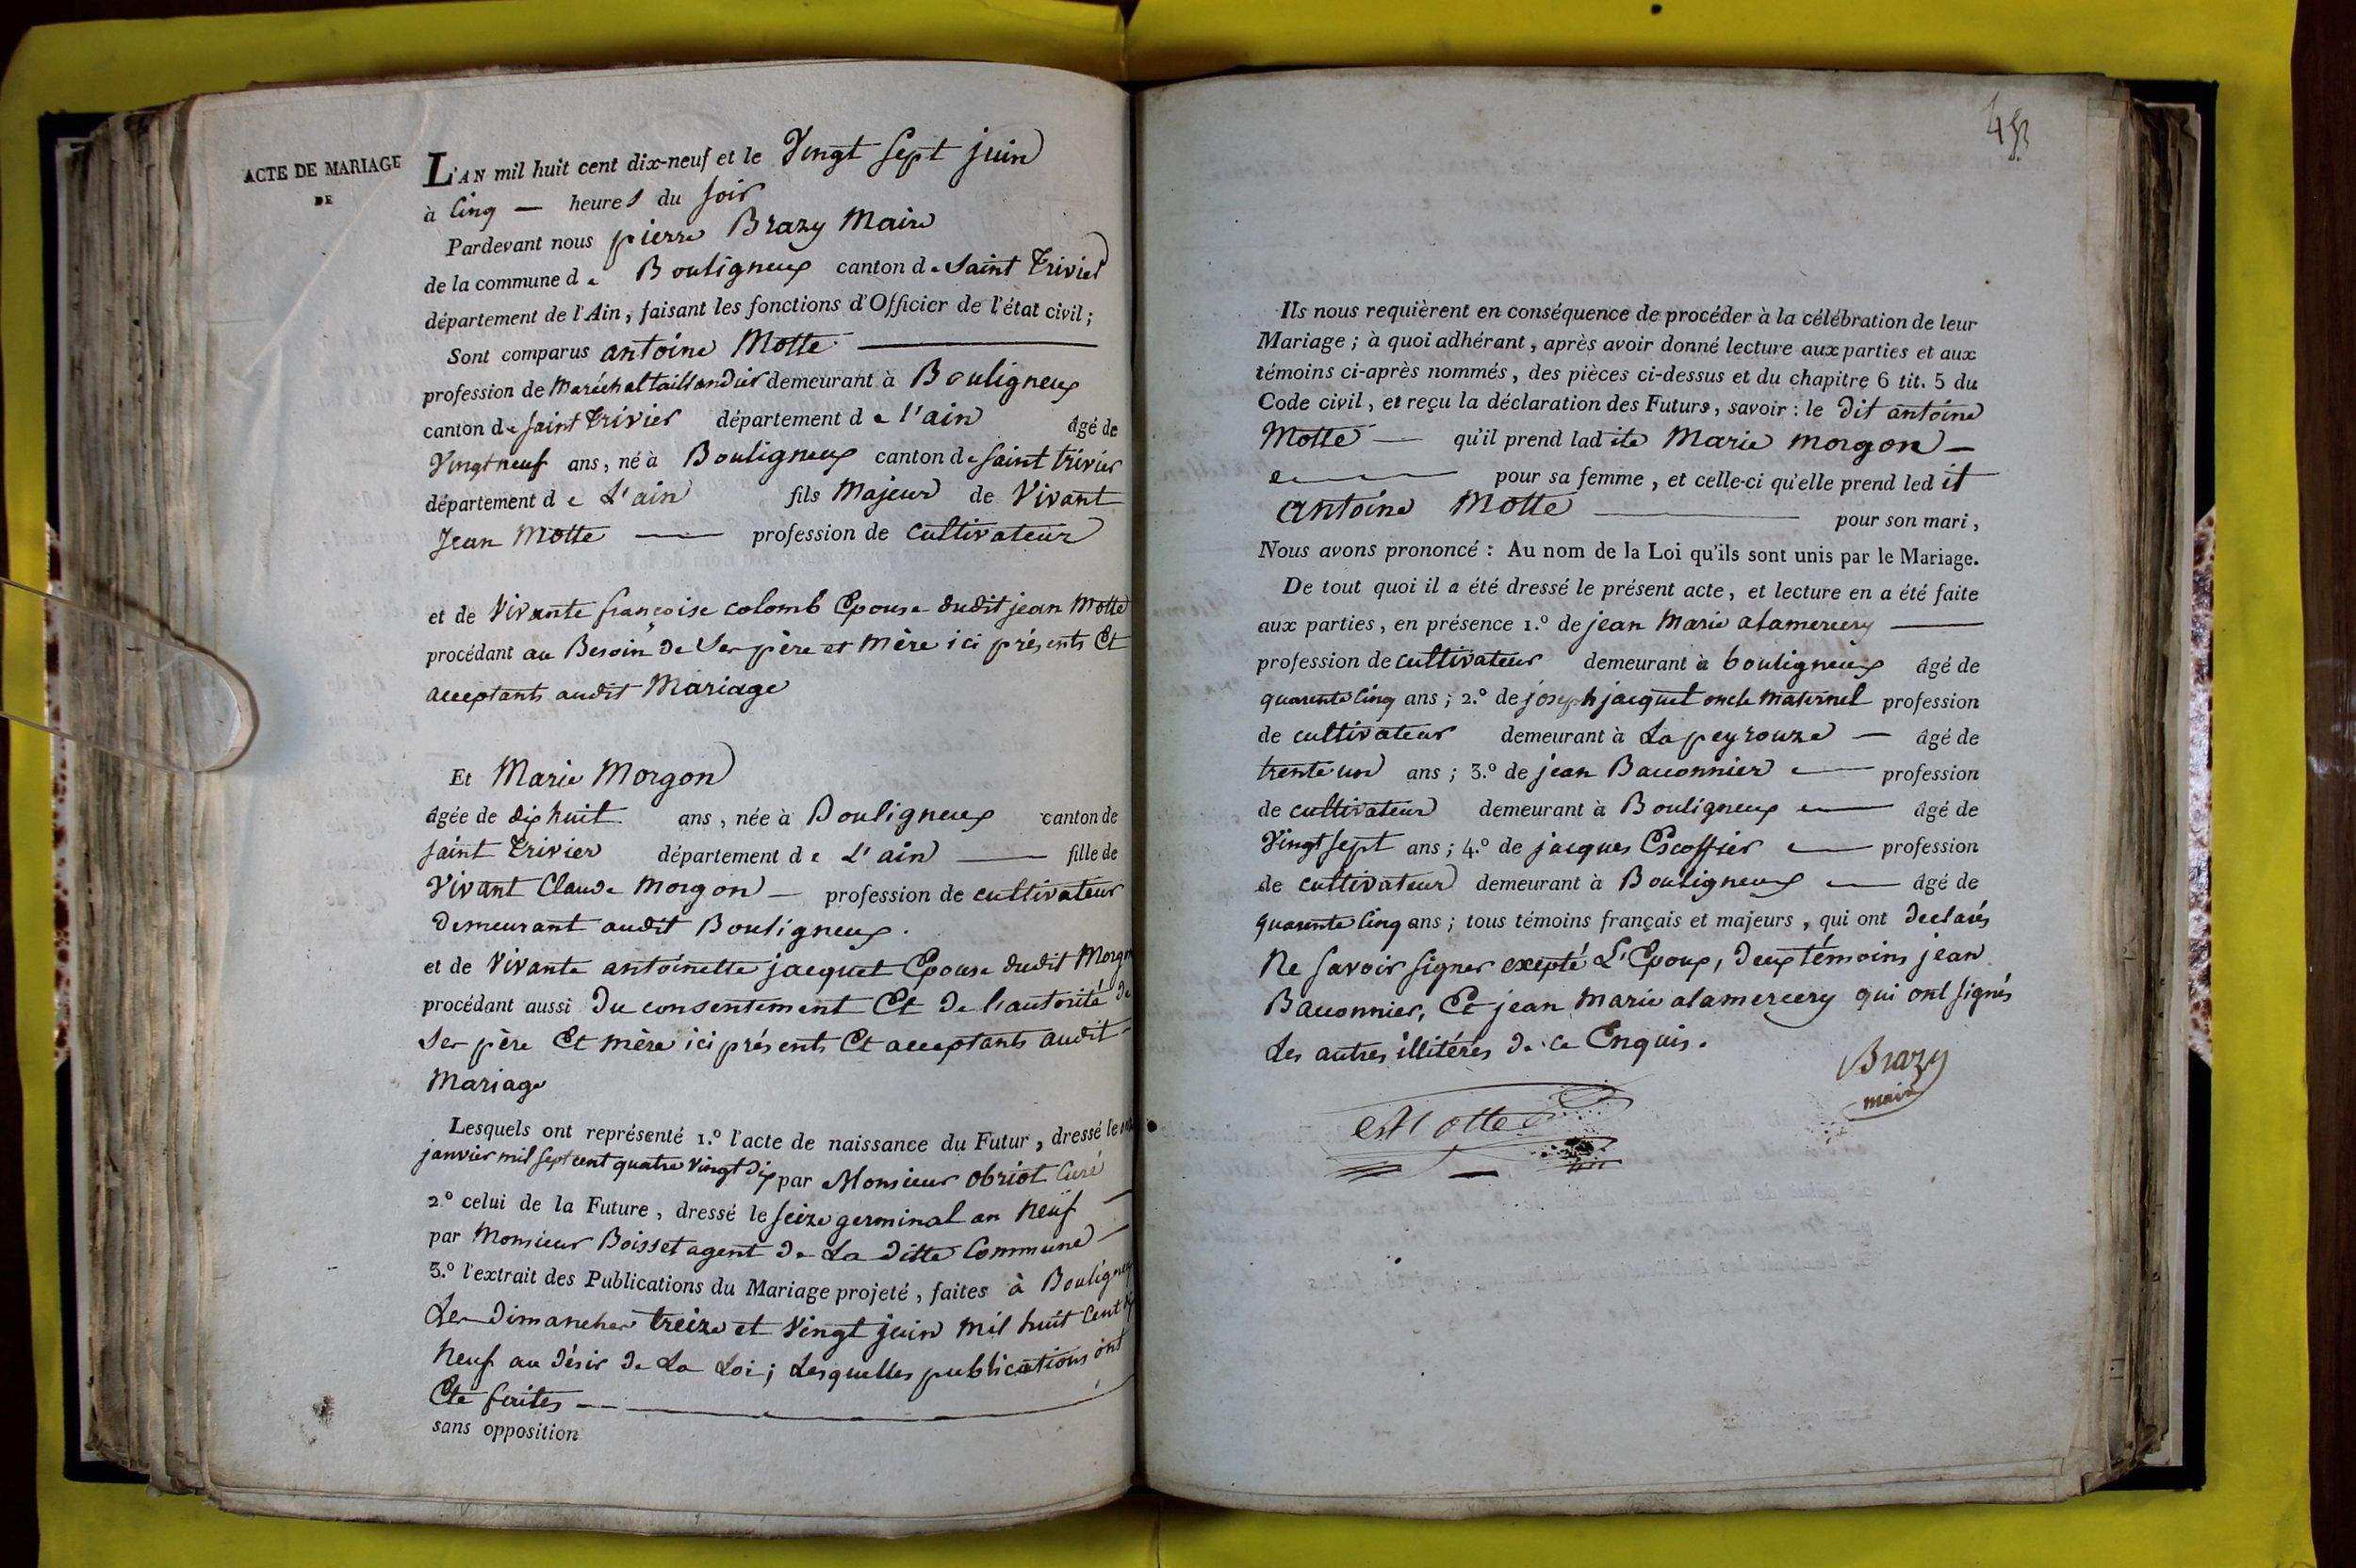 ACTE DE MARIAGE
DE
L'AN mil huit cent dix-neuf et le Vingt sept juin
à Cinq — heures du soir
Pardevant nous pierre Brazy Maire
de la commune de Bouligneux canton de Saint Trivier
département de l'Ain, faisant les fonctions d'Officier de l'état civil;
Sont comparus antoine Motte
profession de Maréchal taillandier demeurant à Bouligneux
canton de saint trivier département de l'ain âgé de
Vingt neuf ans, né à Bouligneux canton de saint trivier
département de L'ain fils Majeur de Vivant
Jean Motte — profession de Cultivateur
et de Vivante françoise colomb Epouse dudit jean Motte
procédant au Besoin de Ses père et Mère ici présents Et
acceptants audit Mariage
Et Marie Morgon
âgée de dix huit ans, née à Bouligneux canton de
saint Trivier département de L'ain — fille de
Vivant Claude Morgon — profession de cultivateur
Demeurant audit Bouligneux.
et de Vivante antoinette jacquet Epouse dudit Morgon
procédant aussi du consentement Et De l'autorité de
Ses père Et mère ici présents Et acceptants audit
Mariage
Lesquels ont représenté 1.º l'acte de naissance du Futur, dressé le
janvier mil sept cent quatre Vingt Dix par Monsieur obriot Curé
2.º celui de la Future, dressé le seize germinal an Neuf —
par Monsieur Boisset agent De La Ditte Commune —
3.º l'extrait des Publications du Mariage projeté, faites à Bouligneux
Les Dimanches treize et Vingt juin Mil huit Cent dix
Neuf au désir De La Loi; Lesquelles publications ont
Eté faites —
sans opposition
Ils nous requièrent en conséquence de procéder à la célébration de leur
Mariage; à quoi adhérant, après avoir donné lecture aux parties et aux
témoins ci-après nommés, des pièces ci-dessus et du chapitre 6 tit. 5 du
Code civil, et reçu la déclaration des Futurs, savoir: le dit antoine
Motte — qu'il prend ladite Marie morgon —
pour sa femme, et celle-ci qu'elle prend ledit
antoine Motte — pour son mari,
Nous avons prononcé: Au nom de la Loi qu'ils sont unis par le Mariage.
De tout quoi il a été dressé le présent acte, et lecture en a été faite
aux parties, en présence 1.º de jean Marie alamercery —
profession de cultivateur demeurant à bouligneux âgé de
quarente Cinq ans; 2.º de joseph jacquet oncle Maternel profession
de cultivateur demeurant à Lapeyrouze — âgé de
trente un ans; 3.º de jean Bauonnier — profession
de cultivateur demeurant à Bouligneux — âgé de
Vingt sept ans; 4.º de jacques Escoffier — profession
de cultivateur demeurant à Bouligneux — âgé de
quarente Cinq ans; tous témoins français et majeurs, qui ont Declarés
Ne savoir signer exepté L'Epoux, Deux témoins jean
Bauonnier, Et jean Marie alamercery qui ont signés
Les autres illitérés De Ce Enquis.
Brazy
maire
Motte